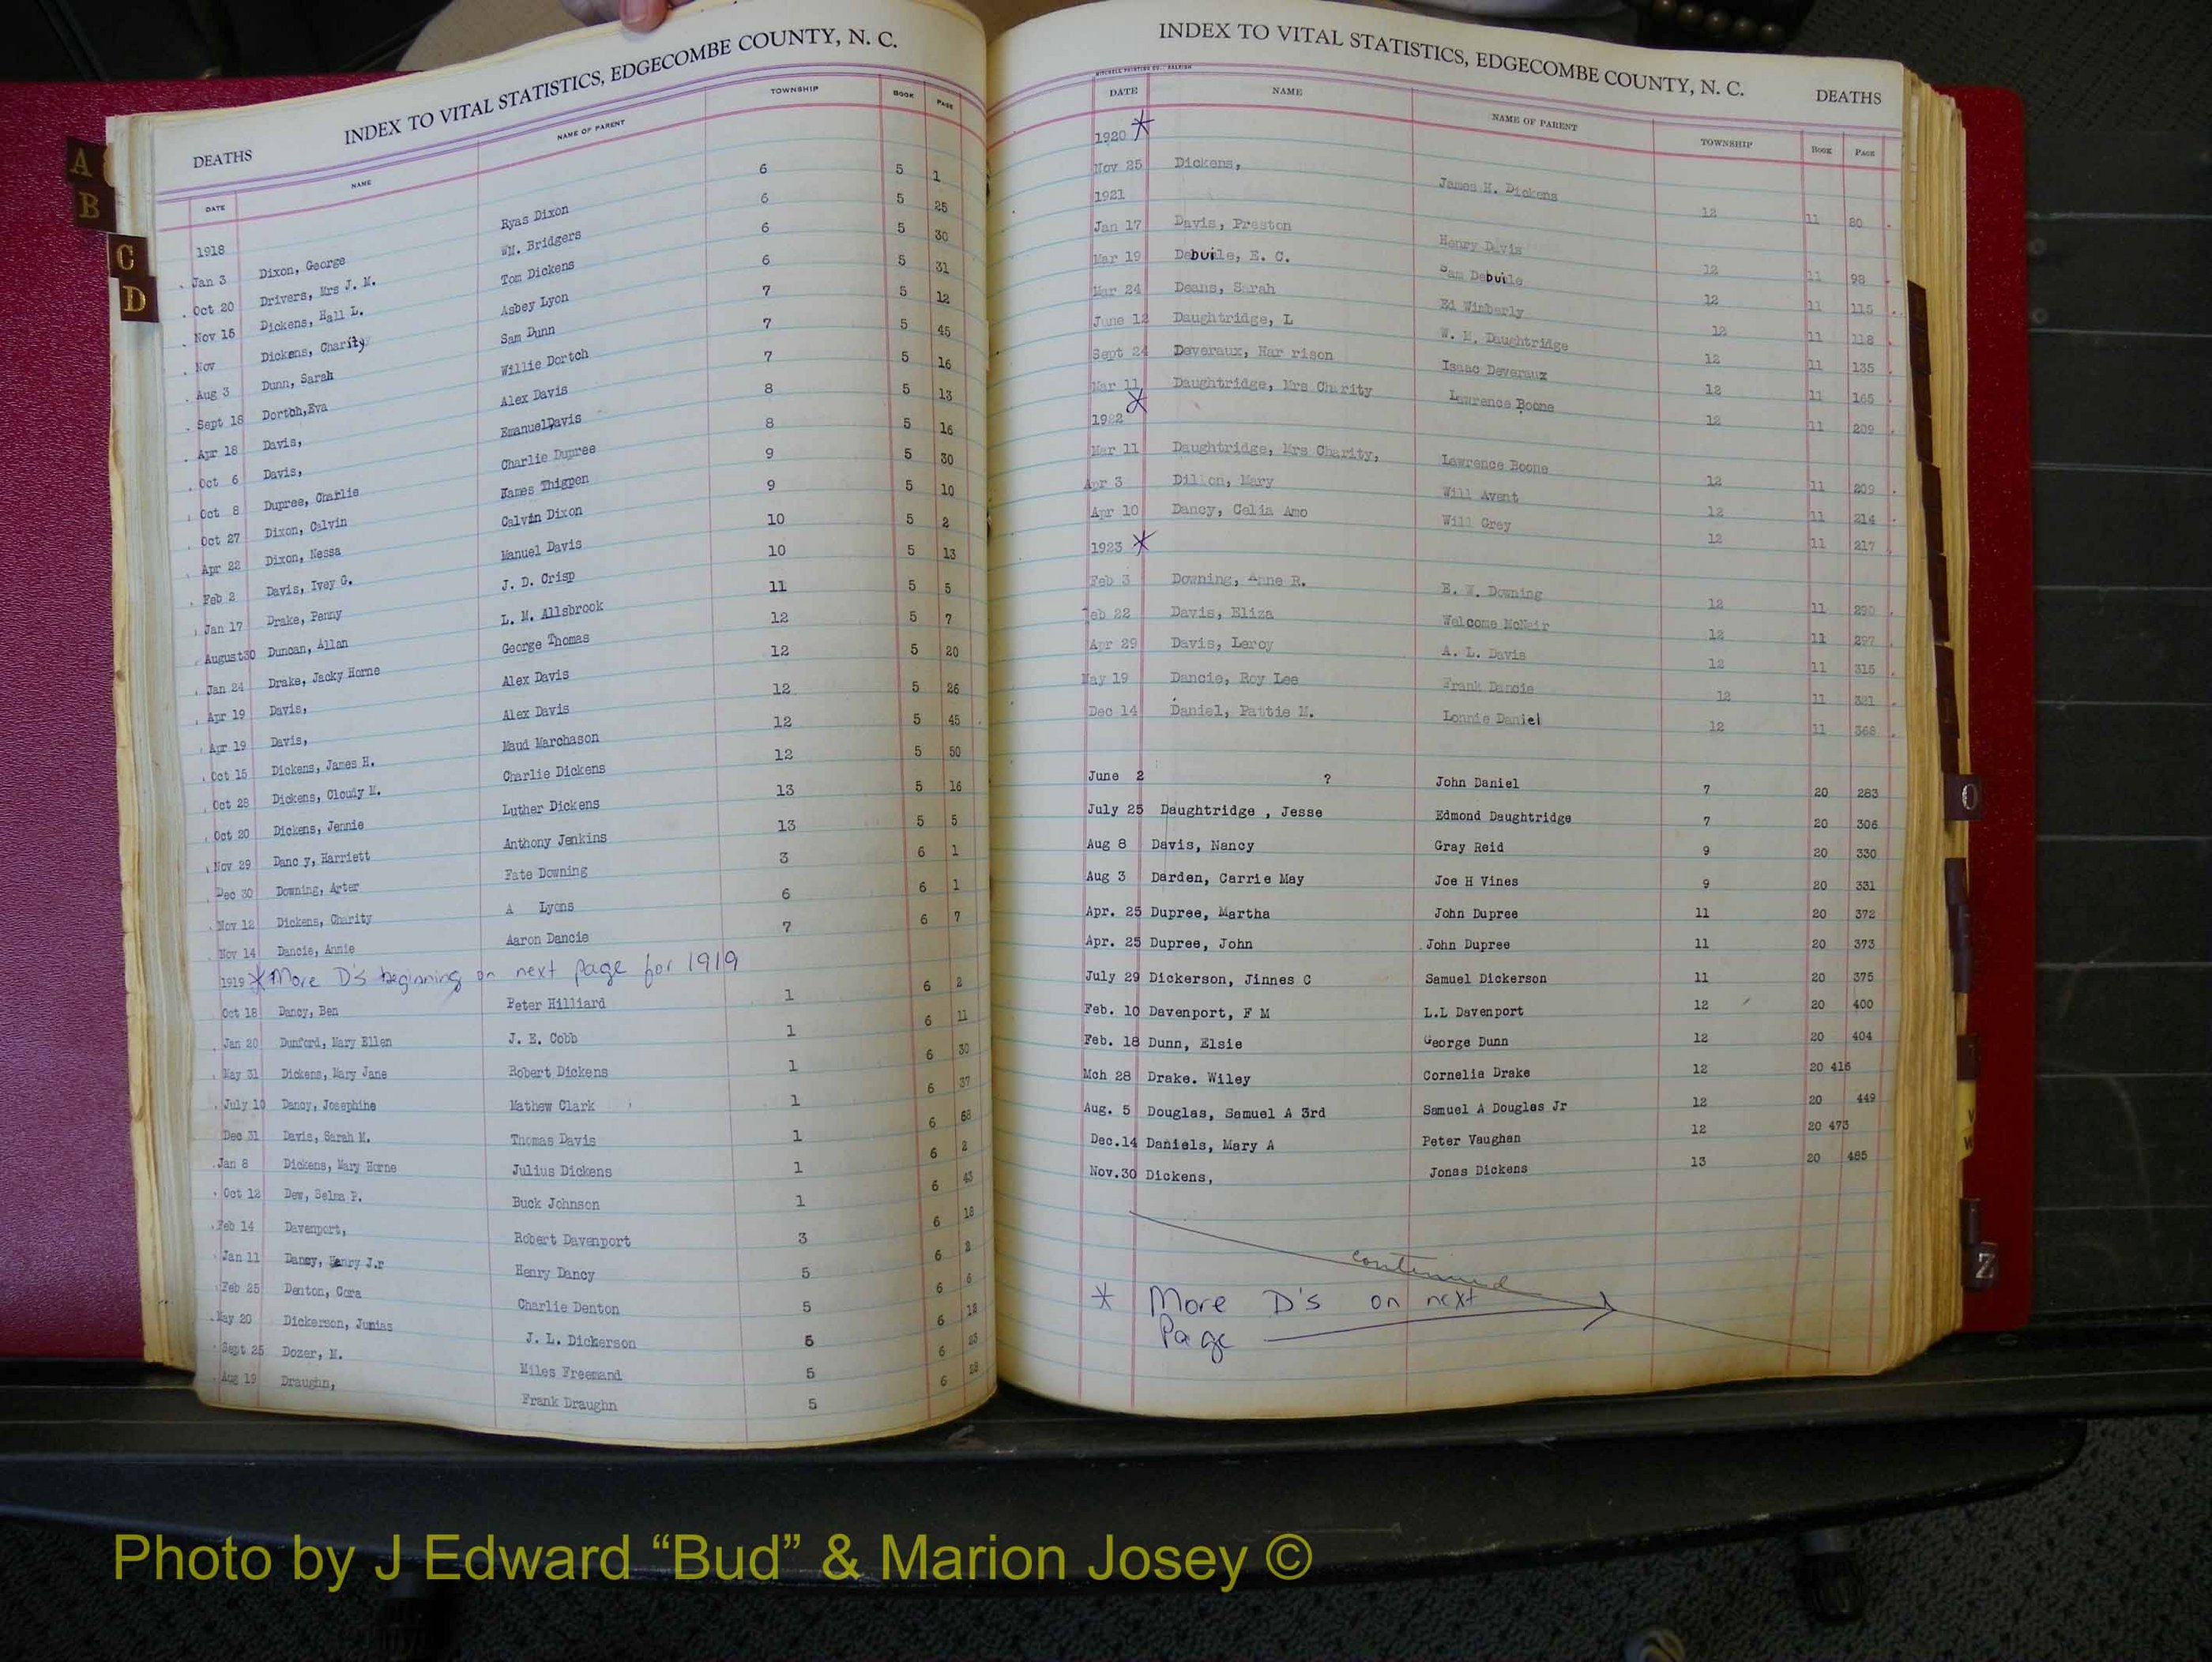 INDEX TO VITAL STATISTICS, EDGECOMBE COUNTY, N. C.
DEATHS
DATE NAME NAME OF PARENT TOWNSHIP BOOK PAGE
1918
Jan 3 Dixon, George Ryas Dixon 6 5 1
Oct 20 Drivers, Mrs J. M. WM. Bridgers 6 5 25
Nov 15 Dickens, Hall L. Tom Dickens 6 5 30
Nov Dickens, Charity Asbey Lyon 6 5 31
Aug 3 Dunn, Sarah Sam Dunn 7 5 12
Sept 18 Dortch,Eva Willie Dortch 7 5 45
Apr 18 Davis, Alex Davis 7 5 16
Oct 6 Davis, EmanuelDavis 8 5 13
Oct 8 Dupree, Charlie Charlie Dupree 8 5 16
Oct 27 Dixon, Calvin James Thigpen 9 5 30
Apr 22 Dixon, Nessa Calvin Dixon 9 5 10
Feb 2 Davis, Ivey G. Manuel Davis 10 5 2
Jan 17 Drake, Penny J. D. Crisp 10 5 13
August30 Duncan, Allan L. M. Allsbrook 11 5 5
Jan 24 Drake, Jacky Horne George Thomas 12 5 7
Apr 19 Davis, Alex Davis 12 5 20
Apr 19 Davis, Alex Davis 12 5 26
Oct 15 Dickens, James H. Maud Marchason 12 5 45
Oct 28 Dickens, Cloudy M. Charlie Dickens 12 5 50
Oct 20 Dickens, Jennie Luther Dickens 13 5 16
Nov 29 Danc y, Harriett Anthony Jenkins 13 5 5
Dec 30 Downing, Arter Fate Downing 3 6 1
Nov 12 Dickens, Charity A Lyons 6 6 1
Nov 14 Dancie, Annie Aaron Dancie 7 6 7
1919 * More D's beginning on next page for 1919
Oct 18 Dancy, Ben Peter Hilliard 1 6 2
Jan 20 Dunford, Mary Ellen J. E. Cobb 1 6 11
May 31 Dickens, Mary Jane Robert Dickens 1 6 30
July 10 Dancy, Josephine Mathew Clark 1 6 37
Dec 31 Davis, Sarah M. Thomas Davis 1 6 68
Jan 8 Dickens, Mary Horne Julius Dickens 1 6 2
Oct 12 Dew, Selma P. Buck Johnson 1 6 43
Feb 14 Davenport, Robert Davenport 3 6 18
Jan 11 Dancy, Henry J.r Henry Dancy 5 6 2
Feb 25 Denton, Cora Charlie Denton 5 6 6
May 20 Dickerson, Junias J. L. Dickerson 5 6 18
Sept 25 Dozer, N. Miles Freemand 5 6 23
Aug 19 Draughn, Frank Draughn 5 6 28
INDEX TO VITAL STATISTICS, EDGECOMBE COUNTY, N. C.
DEATHS
MITCHELL PRINTING CO., RALEIGH
DATE NAME NAME OF PARENT TOWNSHIP BOOK PAGE
1920 *
Nov 25 Dickens, James H. Dickens 12 11 80
1921
Jan 17 Davis, Preston Henry Davis 12 11 98
Mar 19 Debuile, E. C. Sam Debuile 12 11 115
Mar 24 Deans, Sarah Ed Wimberly 12 11 118
June 12 Daughtridge, L W. M. Daughtridge 12 11 135
Sept 24 Deveraux, Har rison Isaac Deveraux 12 11 165
Mar 11 Daughtridge, Mrs Charity Lawrence Boone 12 11 209
1922 *
Mar 11 Daughtridge, Mrs Charity, Lawrence Boone 12 11 209
Apr 3 Dillon, Mary Will Avent 12 11 214
Apr 10 Dancy, Celia Amo Will Grey 12 11 217
1923 *
Feb 3 Downing, Anne R. E. W. Downing 12 11 290
Feb 22 Davis, Eliza Welcome McNair 12 11 297
Apr 29 Davis, Leroy A. L. Davis 12 11 315
May 19 Dancie, Roy Lee Frank Dancie 12 11 321
Dec 14 Daniel, Pattie M. Lonnie Daniel 12 11 368
June 2 ? John Daniel 7 20 283
July 25 Daughtridge , Jesse Edmond Daughtridge 7 20 306
Aug 8 Davis, Nancy Gray Reid 9 20 330
Aug 3 Darden, Carrie May Joe H Vines 9 20 331
Apr. 25 Dupree, Martha John Dupree 11 20 372
Apr. 25 Dupree, John John Dupree 11 20 373
July 29 Dickerson, Jinnes C Samuel Dickerson 11 20 375
Feb. 10 Davenport, F M L.L Davenport 12 20 400
Feb. 18 Dunn, Elsie George Dunn 12 20 404
Mch 28 Drake. Wiley Cornelia Drake 12 20 416
Aug. 5 Douglas, Samuel A 3rd Samuel A Douglas Jr 12 20 449
Dec.14 Daniels, Mary A Peter Vaughan 12 20 473
Nov.30 Dickens, Jonas Dickens 13 20 485
continued
* More D's on next
Page
A
B
C
D
O
V
W
Z
Photo by J Edward “Bud” & Marion Josey ©